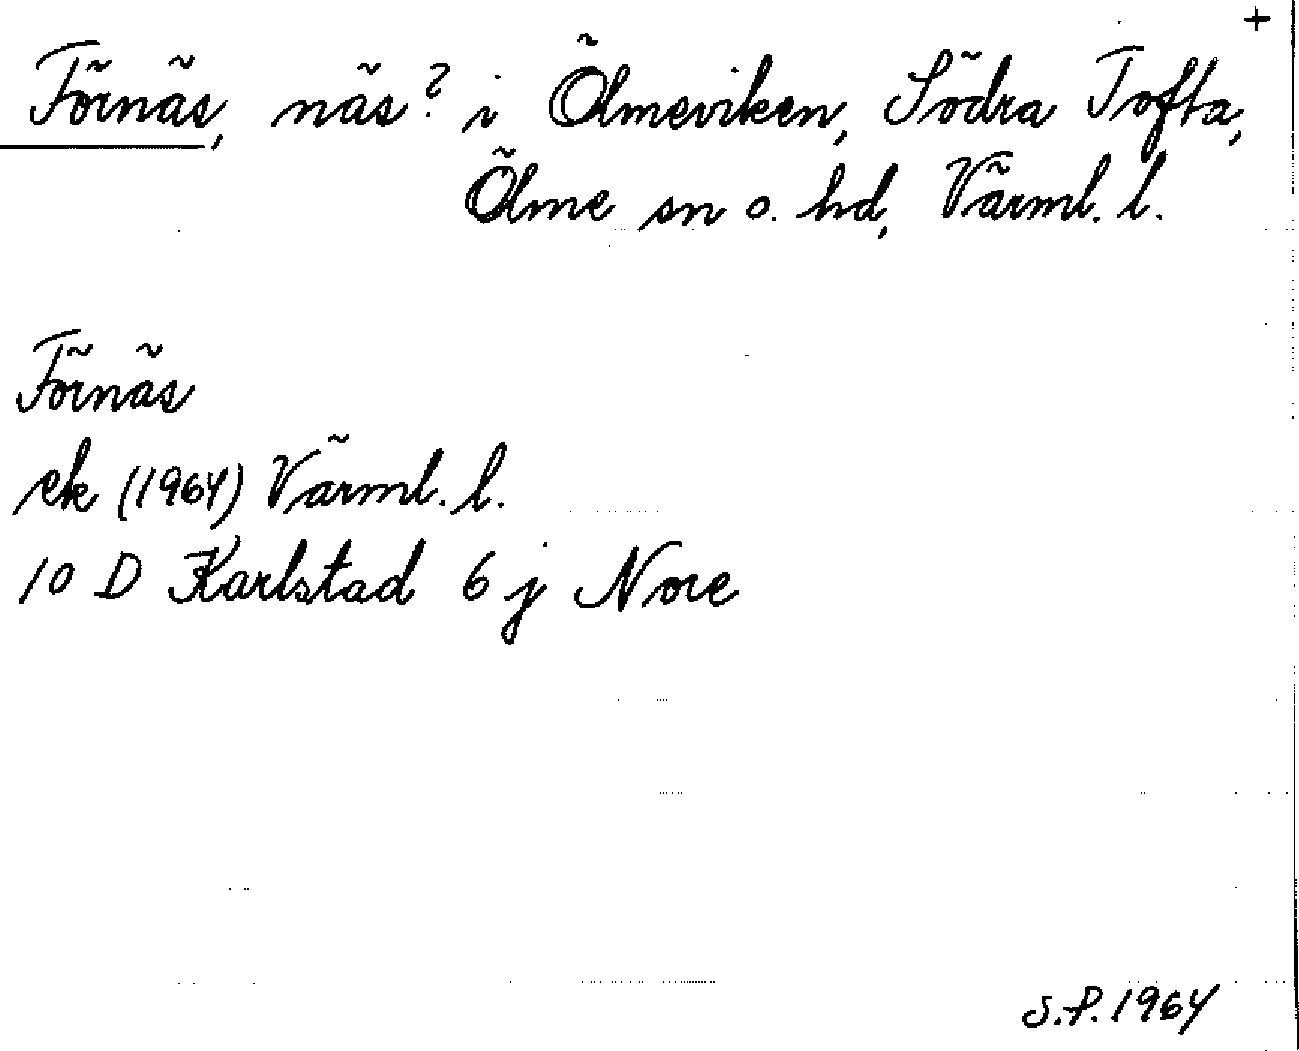 +
Förnäs, näs? i Ölmeviken, Södra Tofta,
Ölme sn o. hd, Värml. l.
Förnäs
ek (1964) Värml. l.
10 D Karlstad 6 j Nore
S.P. 1964